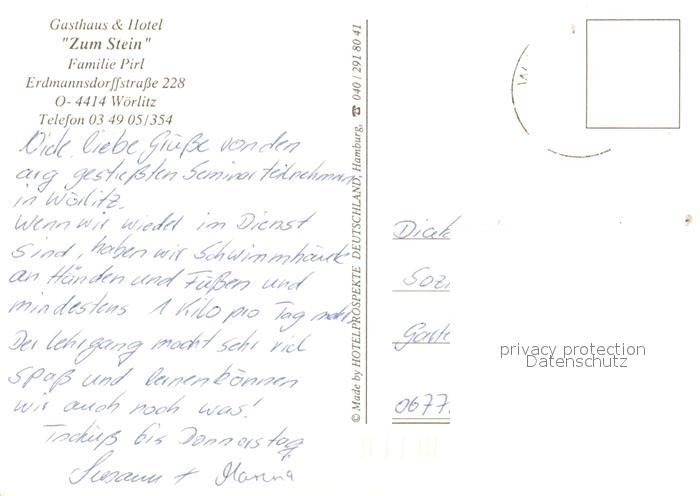 Gasthaus & Hotel
"Zum Stein"
Familie Pirl
Erdmannsdorffstraße 228
O- 4414 Wörlitz
Telefon 03 49 05/354
Viele liebe Grüße von den
arg gestreßten Seminarteilnehmern
in Wörlitz.
Wenn wir wieder im Dienst
sind, haben wir Schwimmhäute
an Händen und Füßen und
mindestens 1 Kilo pro Tag mehr.
Der Lehrgang macht sehr viel
Spaß und lernen können
wir auch noch was!
Tschüß bis Donnerstag
Susann + Marina
© Made by HOTELPROSPEKTE DEUTSCHLAND, Hamburg, ☎ 040 / 291 80 41
Sozi
Garte
0677
privacy protection
Datenschutz